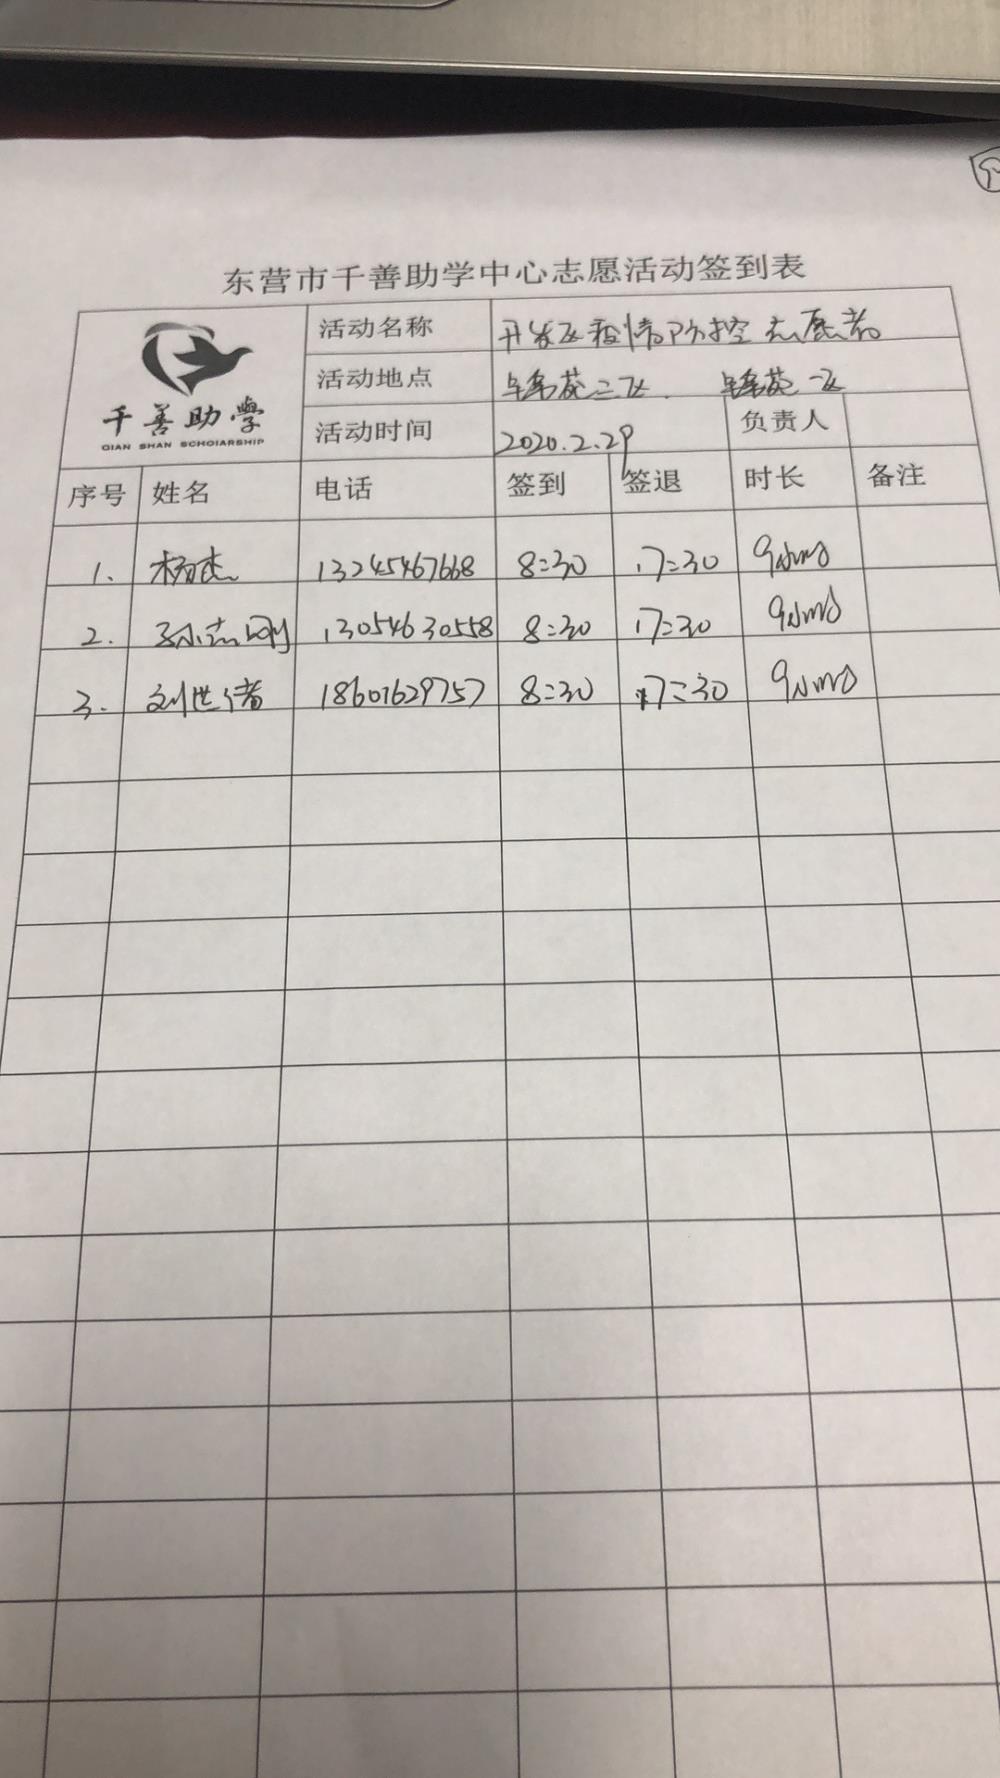 东营市千善助学中心志愿活动签到表
千善助学
QIAN SHAN SCHOlARSHIP
活动名称 开发区疫情防控志愿者
活动地点 锦苑三区 锦苑一区
活动时间 2020.2.29 负责人
序号 姓名 电话 签到 签退 时长 备注
1. 杨杰 13245467668 8:30 17:30 9小时
2. 孙志刚 13054630558 8:30 17:30 9小时
3. 刘世 18601629757 8:30 17:30 9小时